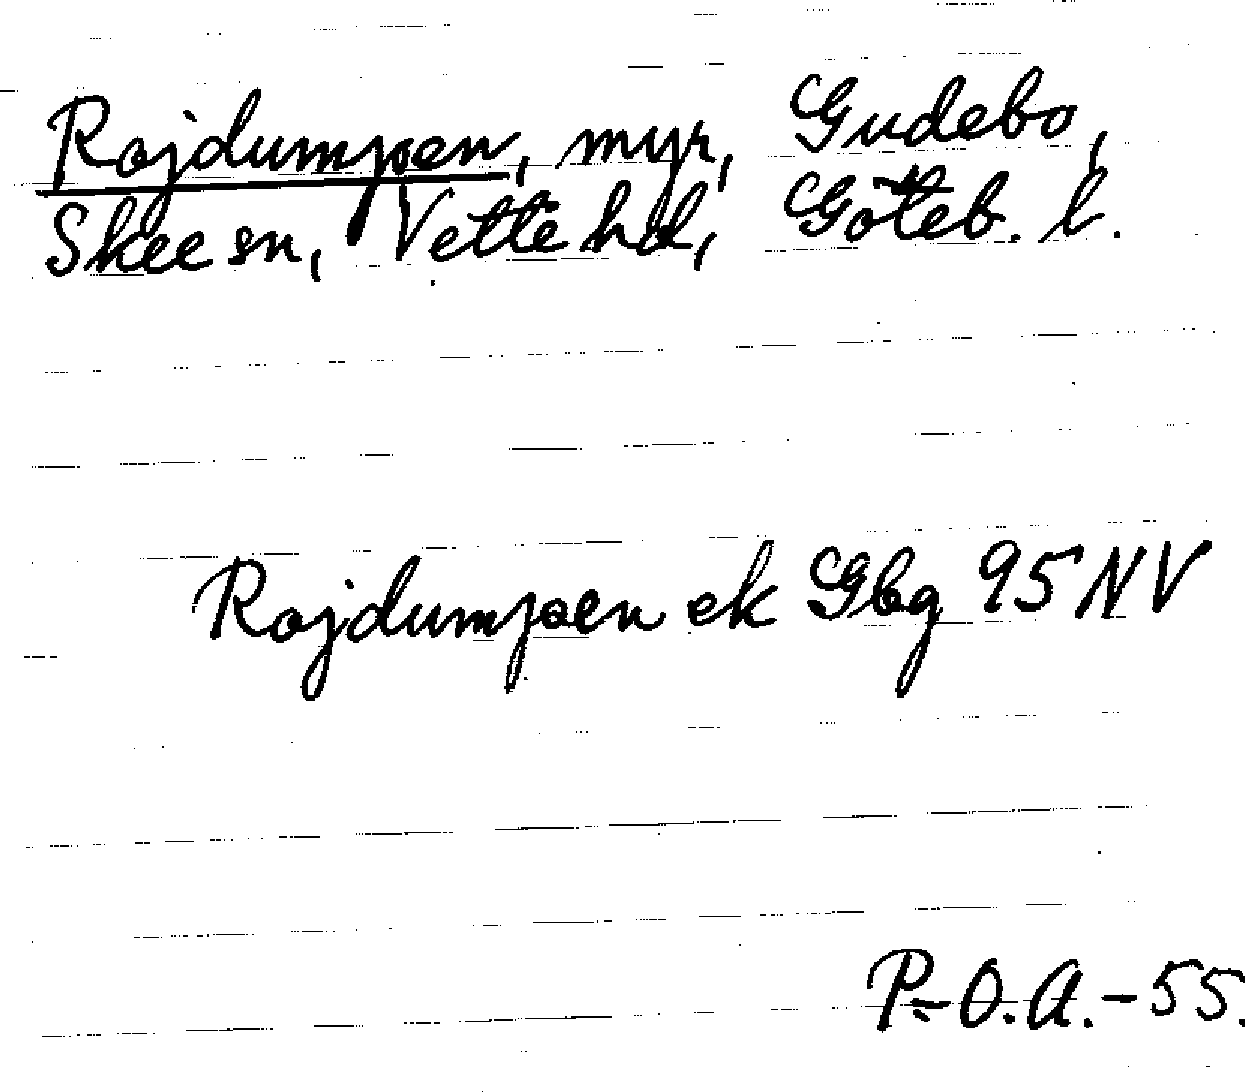 Rojdumpen, myr, Gudebo,
Skee sn, Vette hd, Göteb. l.
Rojdumpen ek Gbg 95 NV
P-O.A.-55.